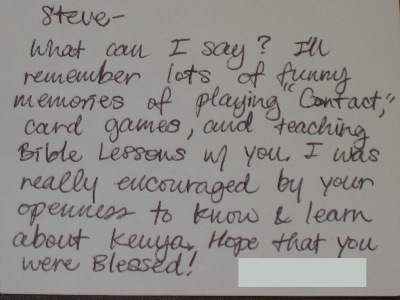 Steve-
What can I say? I'll
remember lots of funny
memories of playing "Contact,"
card games, and teaching
Bible Lessons w/ you. I was
really encouraged by your
openness to know & learn
about Kenya. Hope that you
were Blessed!